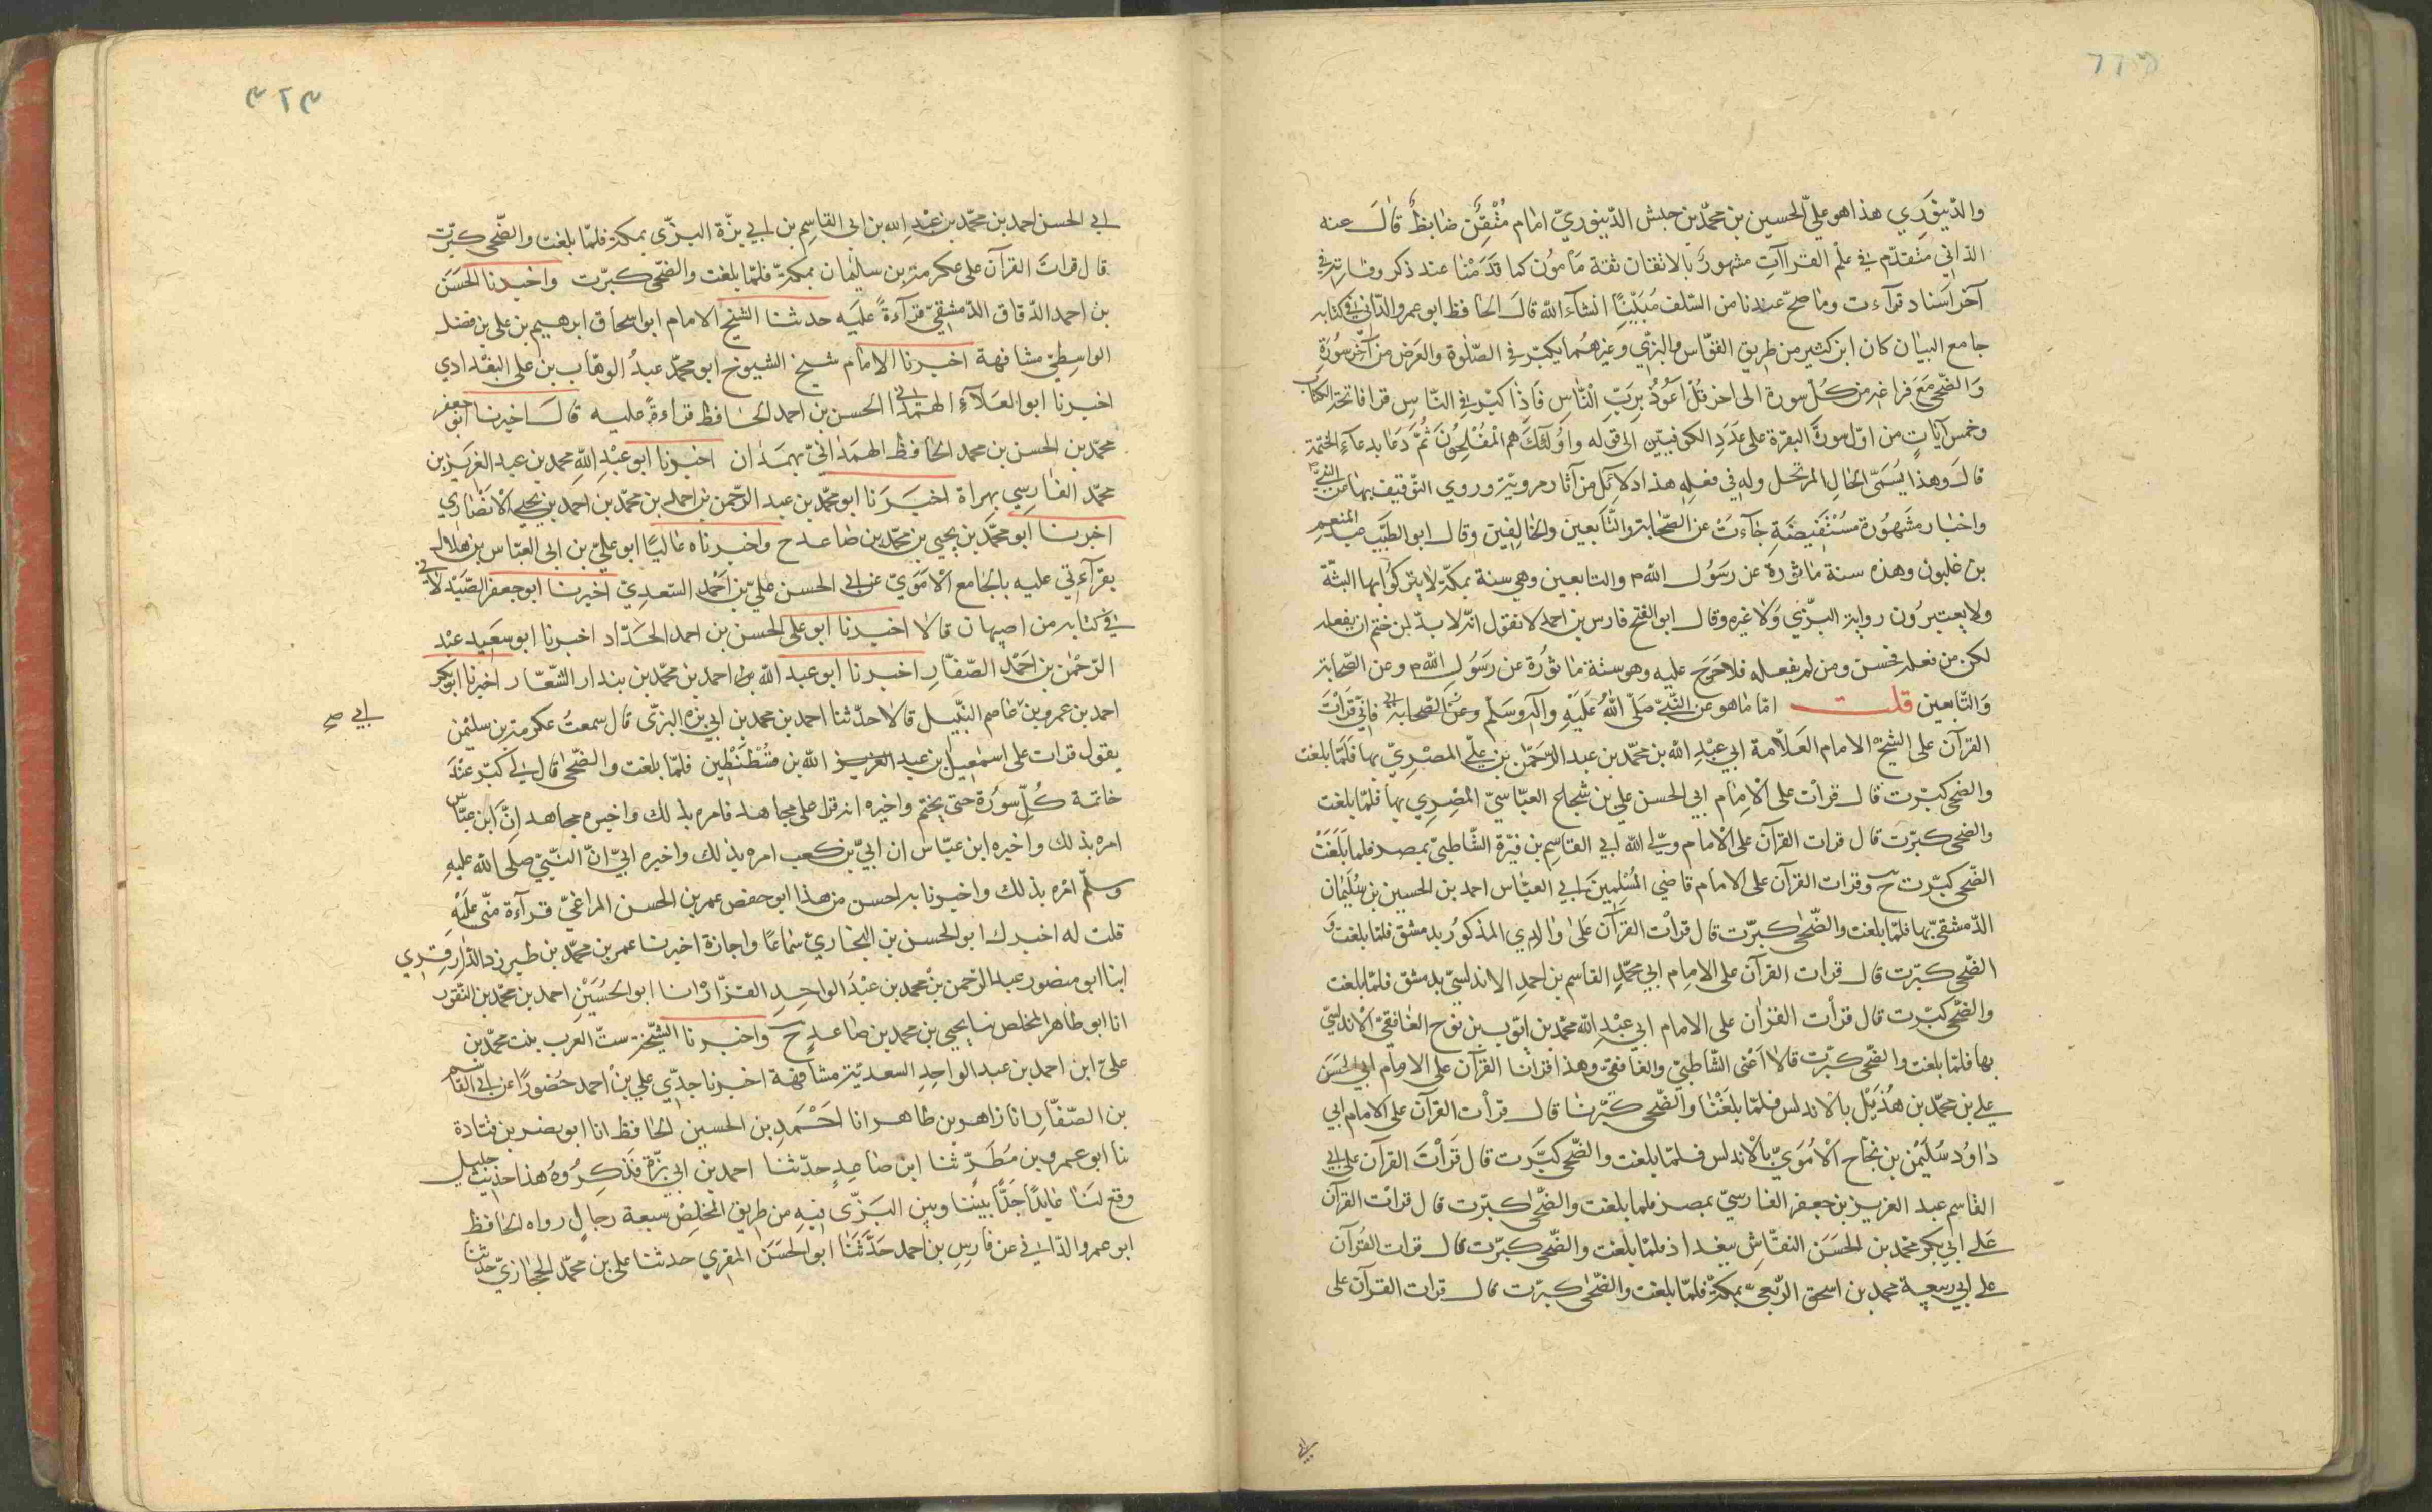 والدّينوَرِي هذا هو عليّ الحسين بن محمّد بن حبش الدّينوريّ امام مُتْقِنٌ ضابطٌ قالَ عنه
الدّاني متقدّم في علم القراآت مشهورٌ بالاتقان ثقة مأمون كما قدّمْنا عند ذكر وفاته في
آخر اسناد قرآءت وما صحّ عندنا من السّلف مُبَيّنًا انشآء الله قالَ الحافظ ابو عمرو الدّاني في كتابه
جامع البيان كان ابن كثير من طريق القوّاس والبزّي وغيرهما يكبّر في الصّلوة والعرض من آخر سُورَة
وَالضّحى مَعَ فراغه من كُلّ سورة الى اخر قُلْ اَعُوذُ بِرَبِّ النَّاسِ فَاذا كبّر في النّاسِ قرا فاتحة الكتاب
وخمس آياتٍ من اوّل سورة البقرة على عَدَدِ الكوفيين الى قوله واُولئك هم المُفْلحون ثُمَّ دَعَا بدعآءِ الختمة
قالَ وهذا يُسَمّى الحالّ المرتحل وله في فعله هذا دلائل من آثار مرويّة وروي التّوقيف بها عن النّبيّ م
واخبار مشهورة مستفيضة جآءت عن الصّحابة والتّابعين والخالفين وقال ابو الطّيّب عبد المنعم
بن غلبون وهذه سنة مأثورة عن رسُول الله م والتابعين وهي سنة بمكّة لا يتركوُنها البتّة
ولا يعتبرُون رواية البزّي وَلا غيره وقال ابو الفتح فارس بن احمد لا نقول انّه لا بدّ لمن ختم ان يفعله
لكن من فعله فحسن ومن لم يفعله فلا حَرَجَ عليه وهو سنّة مأثورة عن رسُول الله م وعن الصّحابة
وَالتّابعين قلت امّا ما هو عن النّبيّ صَلّى اللهُ عَلَيْهِ وآله وسَلّم وعن الصّحابة فانّي قرَأت
القرآن على الشيخ الامام العَلّامة ابي عبْدِ الله بن محمّد بن عبد الرّحمٰن بن عليّ المصْريّ بها فَلَمّا بلغت
والضحى كبّرت قال قرأت على الامام ابي الحسن علي بن شجاع العبّاسيّ المصْري بها فلمّا بلغت
والضحى كبّرت قال قرات القرآن على الامام وليّ الله ابي القاسِم بن فيّرة الشّاطبيّ بمصر فلما بَلَغَتْ
الضّحى كبّرت ح وقرات القرآن على الامام قاضي المُسْلِمينَ ابي العبّاس احمد بن الحسين بن سُلَيمَان
الدّمشقيّ بها فلمّا بلغت والضّحى كبّرت قال قرأت القرآن عَلى وَالدي المذكورُ بدمشق فلمّا بلغت وَ
الضّحى كبّرت قال قرات القرآن على الامام ابي محمّد القاسم بن احمد الاندلسيّ بدمشق فلمّا بلغت
والضّحى كبّرت قال قرأت القرآن على الامام ابي عبْدِ الله محمّد بن ايّوب بن نوح الغافقيّ الاندلسيّ
بها فلمّا بلغت والضّحى كبّرت قالا اَعْني الشّاطبيّ والغافقيّ وهذا قرانا القرآن على الامام ابي الحسَن
علي بن محمّد بن هُذَيْل بالاندلس فلمّا بلغْنَا والضّحى كبّرنا قال قرأت القرآن على الامام ابي
دَاوُد سُلَيْمٰن بن نجاح الاُمَوِيّ بالاندلس فلمّا بلغت والضّحى كبّرت قال قرأت القرآن على ابي
القاسم عبد العزيز بن جعفر الفارسيّ بمصر فلما بلغت والضّحى كبّرت قال قرات القرآن
عَلى ابي بكر محمّد بن الحسَن النقّاشِ ببغداذ فلمّا بلغت والضّحى كبّرت قال قرات القرآن
على ابي ربيعة محمد بن اسحق الرّبعيّ بمكّة فلمّا بلغت والضّحى كبّرت قال قرات القرآن على
٣٢٣
ابي الحسن احمد بن محمّد بن عبْدِ الله بن ابي القاسِم بن ابي بزّة البزّى بمكة فلمّا بلغت والضّحى كبّرت
قال قرات القرآن على عكرمة بن سليمان بمكّة فلمّا بلغت والضّحى كبّرت واخبرنا الحَسَن
بن احمد الدّقاق الدّمشقيّ قرآءةً عليَه حدثنا الشيخ الامام ابو اسحاق ابرهيم بن على بن فضل
الواسِطيّ مشافهة اخبرنا الامام شيخ الشيوخ ابو محمّد عبدُ الوهّاب بن على البغْدادي
اخبرنا ابو العَلآءِ الهمَدانيّ الحسن بن احمد الحافظ قرآءةً عليه قالَ اخبرنا ابو جعفر
محمّد بن الحسن بن محمد الحافظ الهمدانيّ بهمَذان اخبرنا ابو عبْدِ اللهِ محمد بن عبد العزيز بن
محمّد الفارسي بهراة اخبرَنا ابو محمّد بن عبد الرّحمن بن احمد بن محمّد بن احمد بن يحيى الانصاري
اخبرنا ابو محمّد بن يحيى بن محمّد بن صاعد ح واخبرناه عاليًا ابو عليّ بن ابى العبّاس بن هلال
بقرآءتي عليه بالجامع الاُمَويّ عن ابي الحسن عليّ بن احْمد السّعدِيّ اخبرنا ابو جعفر الصّيْدلانيّ
في كتابه من اصبهان قالا اخبرنا ابو على الحسن بن احمد الحدّاد اخبرنا ابو سعيد عبْد
الرّحْمٰن بن احَمْد الصّفّارِ اخبرنا ابو عبد الله احمد بن محمّد بن بندار الشّعّار اخبرنا ابو بكر
احمد بن عمرو بن عاصم النبّيل قالا حدّثنا احمد بن محمد بن ابي بزه البزّى قال سمعتُ عكرمة بن سليْمٰن
ابي صح
يقول قرات على اسمٰعيل بن عبد الله بن قسْطَنْطين فلمّا بلغت والضّحى قال لي كبّر عنْدَ
خاتمة كُلّ سورَة حتى يختم واخبره انه قرا على مجاهد فامره بذلك واخبره مجاهد انّ ابن عبّاس
امره بذلك واخبره ابن عبّاس ان ابيّ بن كعب امره بذلك واخبره ابيّ انّ النّبيّ صلى الله عليه
وسلّم امَره بذلك واخبرنا به احسن من هذا ابو حفص عمر بن الحسن المراغيّ قرآءة منّى عليْهِ
قلت له اخبرك ابو الحسن بن البخاريّ سَماعًا واجازة اخبرنا عمر بن محمّد بن طبرزد الدّارقَزي
ابنا ابو منصور عبد الرّحمن بن محمد بن عبْدَ الواحِدِ القزّاز انا ابو الحُسَيْن احمد بن محمّد بن النّقور
انا ابو طاهر المخلص نا يحيى بن محمد بن صاعدٍ ح واخبرنا الشّيْخة ستّ العرب بنت محمّد بن
علىّ ابن احمد بن عبد الواحد السعديّة مشافهة اخبرنا جدّي علي بن احمد حُضورًا عن ابي القاسم
بن الصّفّارِ انا زاهر بن طاهر انا احْمد بن الحسين الحافظ انا ابو نصر بن قتادة
نا ابو عمرو بن مَطَرٍ ثنا ابن صاعدٍ حدّثنا احمد بن ابي بزّة فَذكرُوهُ هذا حَديث جليل
وقع لَنا عَاليًا جدًّا بيننا وبين البَزّى فيه من طريق المخلِصِ سبعة رجالٍ رواه الحافظ
ابو عمرو الدّاني عن فارسِ بن احمد حَدَّثنا ابو الحسَن المقري حدثنا على بن محمّد الحجازيّ حدّثنا